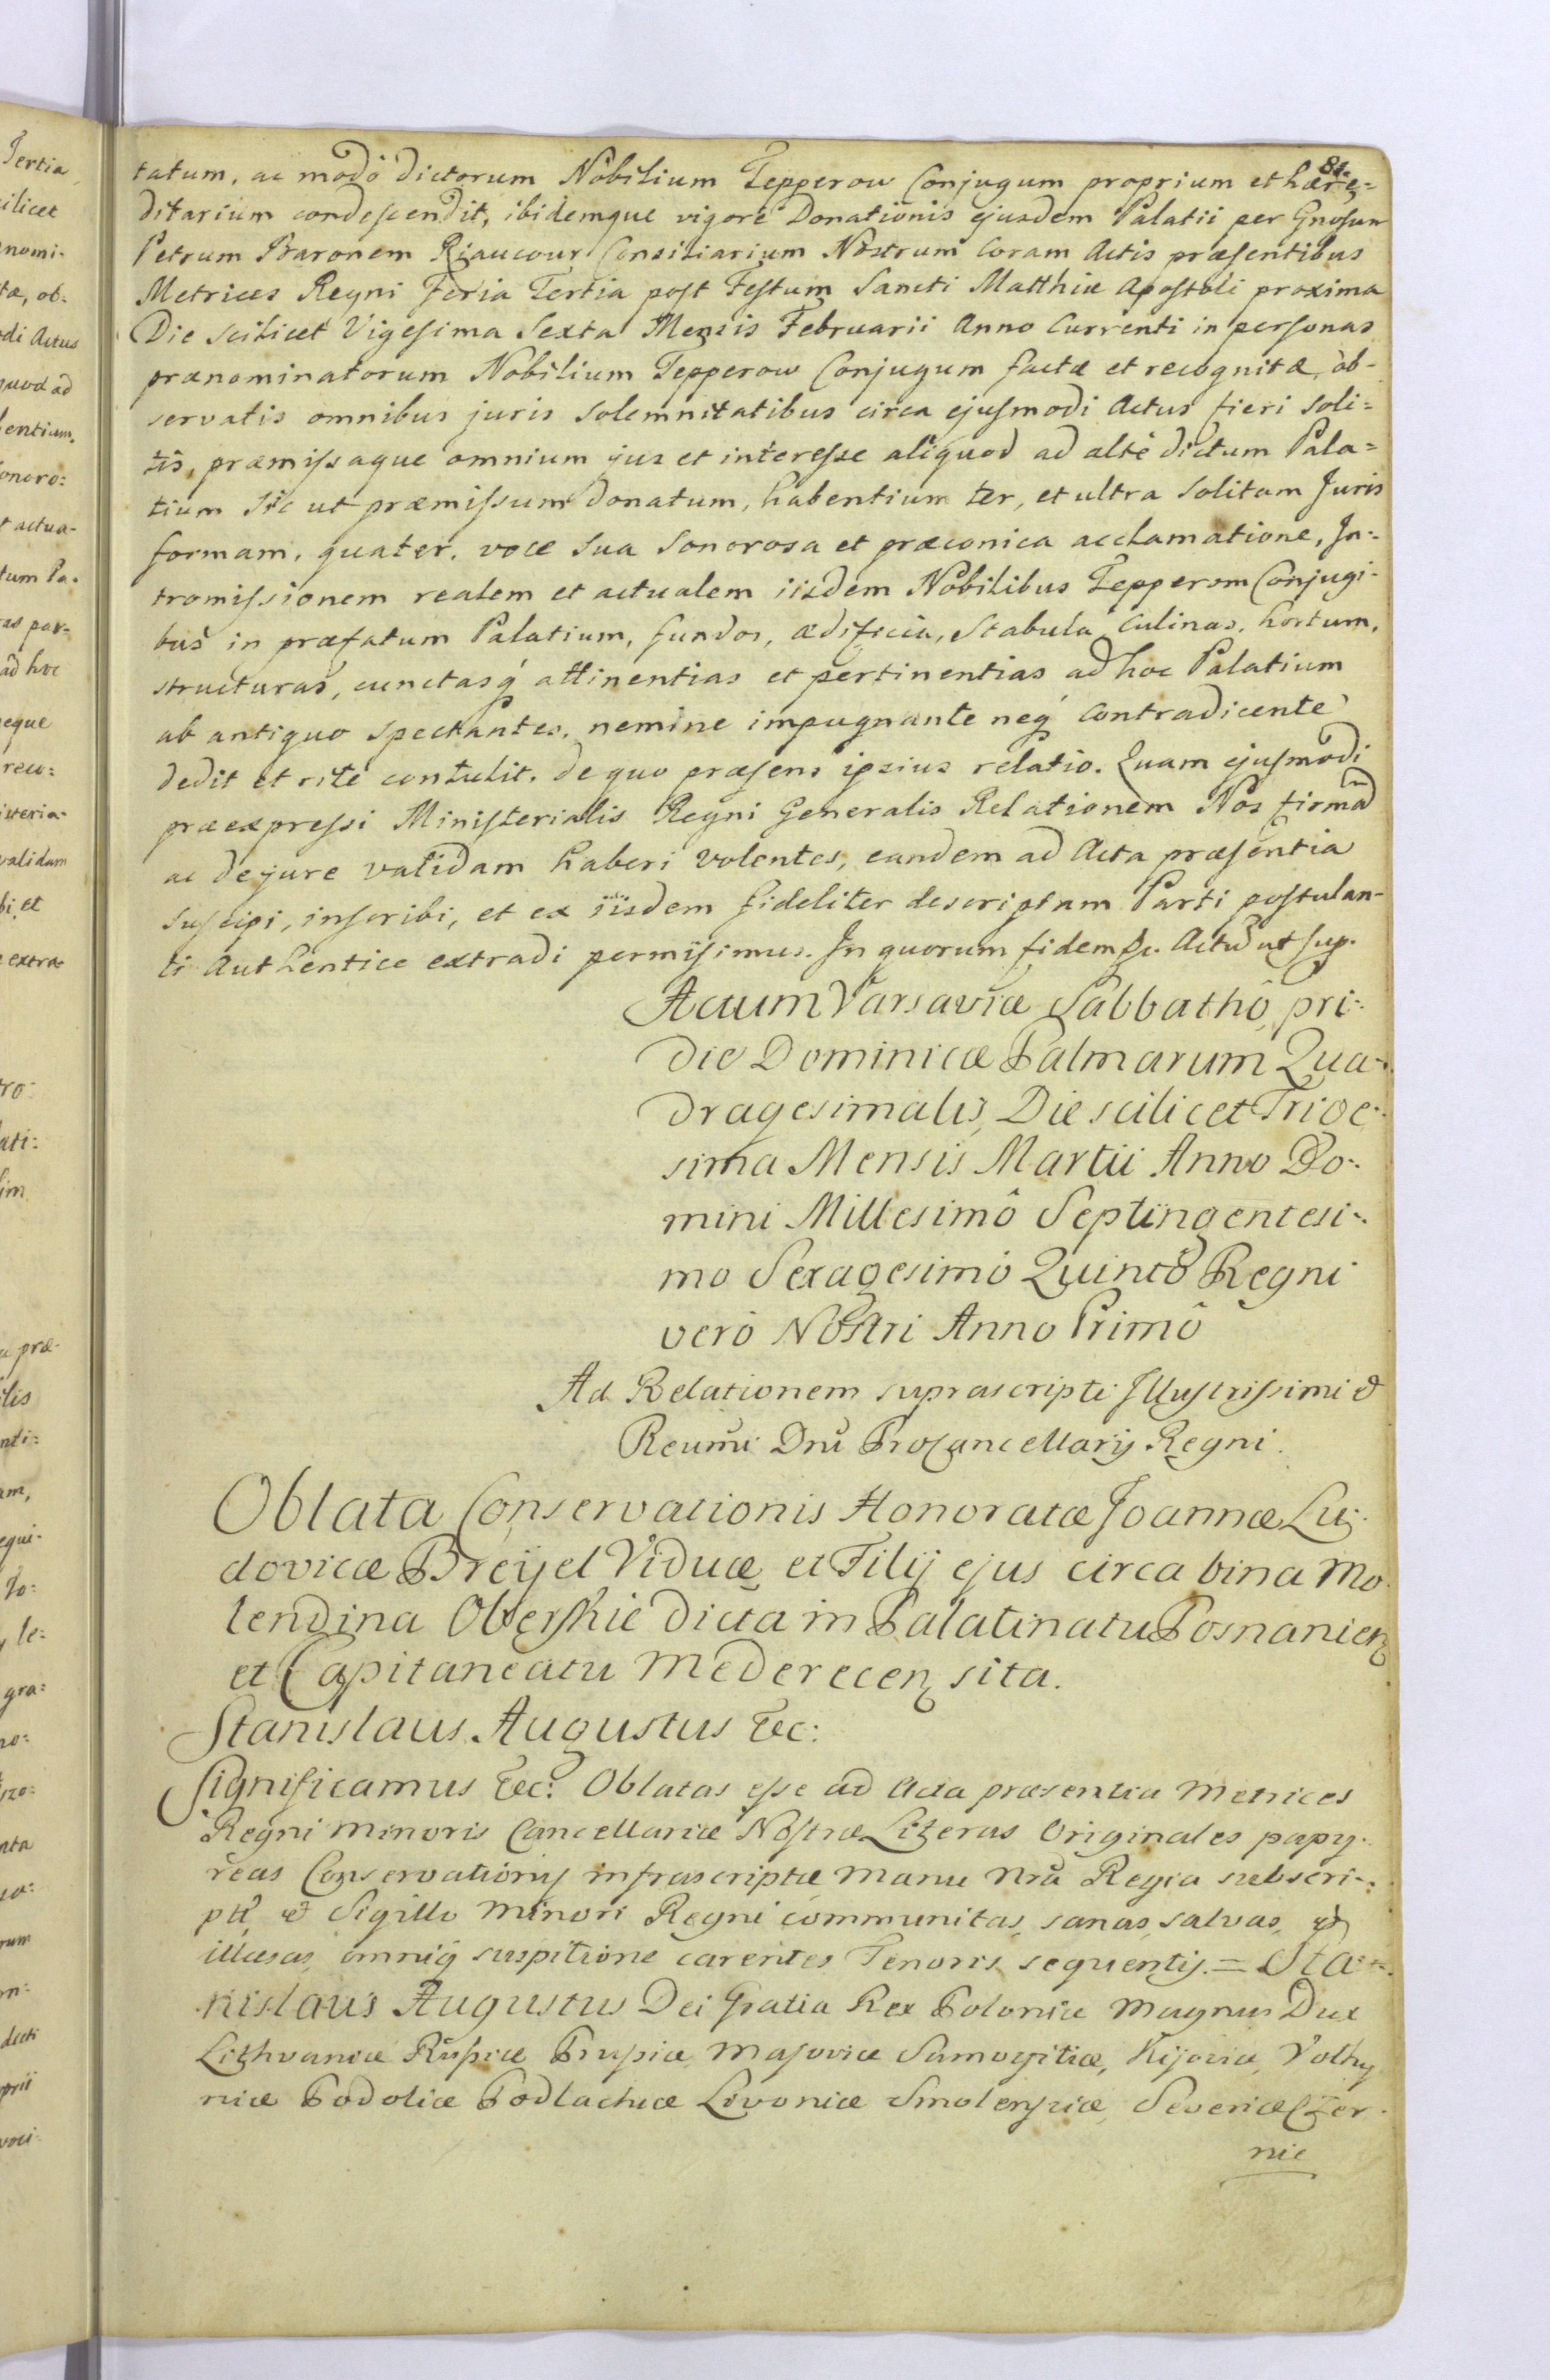 81.
tatum, ac modo dictorum Nobilium Tepperow Conjugum proprium et hære=
ditarium condescendit, ibidemque vigore Donationis ejusdem Palatii per Gnosum
Petrum Baronem Riaucour Consiliarium Nostrum Coram Actis præsentibus
Metrices Regni Feria Tertia post Festum Sancti Matthiæ Apostoli proxima
Die scilicet Vigesima Sexta Mensis Februarii Anno Currenti in personas
prænominatorum Nobilium Tepperow Conjugum factæ et recognitæ, ob-
servatis omnibus juris solemnitatibus circa ejusmodi Actus fieri soli=
tis, præmissaque omnium jus et interesse aliquod ad altè dictum Pala=
tium sic ut præmissum donatum, habentium ter, et ultra solitam Juris
formam, quater, voce sua sonorosa et præconica acclamatione, In=
tromissionem realem et actualem iisdem Nobilibus Tepperom Conjugi-
bus in præfatum Palatium, fundos, ædificia, Stabula Culinas, hortum,
structuras, cunctasq́ attinentias et pertinentias ad hoc Palatium
ab antiquo spectantes, nemine impugnante neq́ contradicente
dedit et ritè contulit. de quo præsens ipsius relatio. Quam ejusmodi
præexpressi Ministerialis Regni Generalis Relationem Nos firmã
ac de jure validam haberi volentes, eandem ad Acta præsentia
suscipi, inscribi, et ex iisdem fideliter descriptam Parti postulan-
ti Authentice extradi permisimus. In quorum fidem &c. Actũ ut sup.
Actum Varsaviæ Sabbathô pri=
die Dominicæ Palmarum Qua=
dragesimalis, Die scilicet Trige=
sima Mensis Martii Anno Do=
mini Millesimô Septingentesi=
mo Sexagesimô Quintô Regni
verò Nostri Anno Primô
Ad Relationem suprascripti Illustrissimi &
Reumi Dni ProCancellarij Regni.
Oblata Conservationis Honoratæ Joannæ Lu=
dovicæ Breijel Viduæ et Filij ejus circa bina Mo=
lendina Oberskie dicta in Palatinatu Posnanien
et Capitaneatu Mederecen sita.
Stanislaus Augustus &c:
Significamus &c: Oblatas esse ad Acta præsentia Metrices
Regni Minoris Cancellariæ Nostræ Literas Originales papy-
reas Conservationis infrascriptæ Manu Nrã Regia subscri-
pti & Sigillo Minori Regni communitas, sanas, salvas, et
illæsas, omniq́ suspitione carentes Tenoris sequentis. = Sta=
nislaus Augustus Dei Gratia Rex Poloniæ Magnus Dux
Lithvaniæ Russiæ Prussiæ, Masoviæ Samogitiæ, Kijoviæ, Volhy
niæ Podoliæ Podlachiæ Livoniæ Smolensciæ, Severiæ Czer-
nie